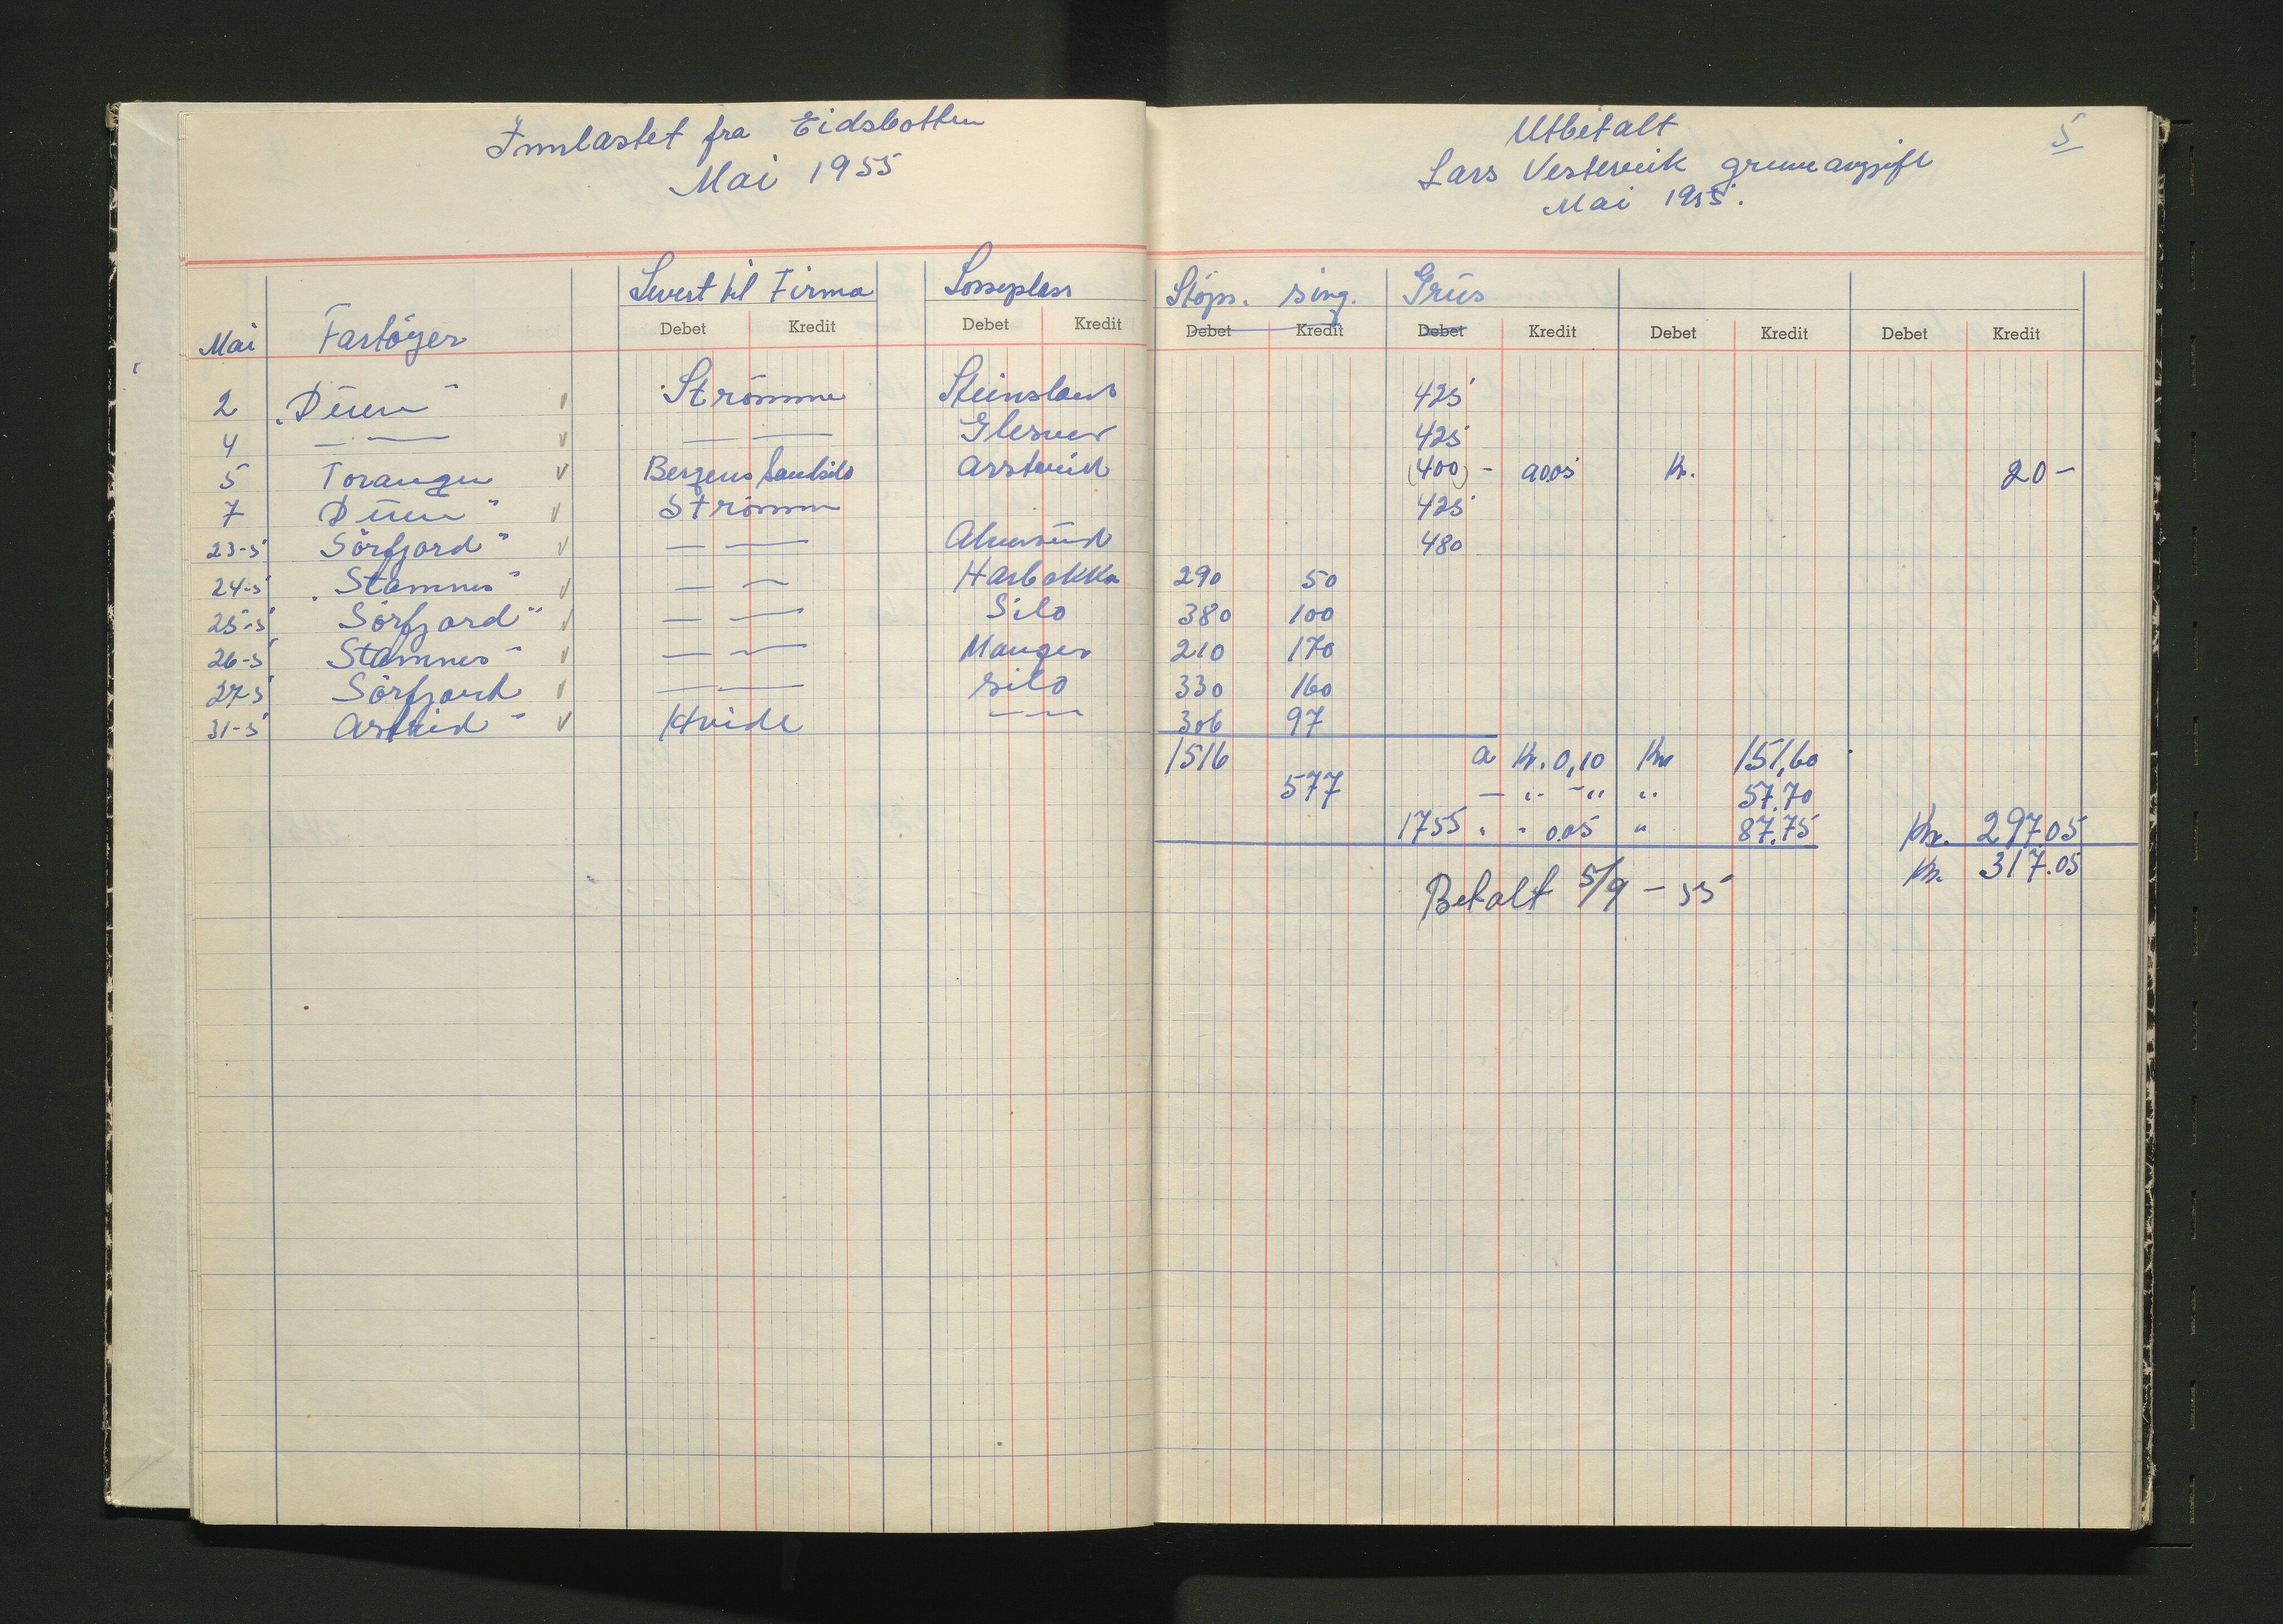 Innlastet fra Eidsbotten
Mai 1955
Levert til Firma Losseplass
Debet Kredit Debet Kredit
Mai Fartöyer
2 „Duen" v Strömme Steinsland
4 — — v — — Glesvær
5 Toranger v Bergens Sandsilo Arstveid
7 Duen" v Strömm
23-5 Sörfjord" v — —
24-5 „Stamnes" v — — Harbakka
25-5 Sörfjord" v — — Silo
26-5 Stamnes" v — — Manger
27-5 Sörfjord v — — silo
31-5 Astrid" v Hvide — —
Utbetalt 5
Lars Vestervik grunnavgift
Mai 1955.
Stöps. sing. Grus
Debet Kredit Debet Kredit Debet Kredit Debet Kredit
425
425
(400) - a 0.05 Kr. 20-
425
480
290 50
380 100
210 170
330 160
306 97
1516 a Kr. 0,10 Kr 151,60
577 — „ -„ „ 57.70
1755 „ - 0.05 " 87.75 Kr. 297.05
Kr. 317.05
Betalt 5/9 - 55